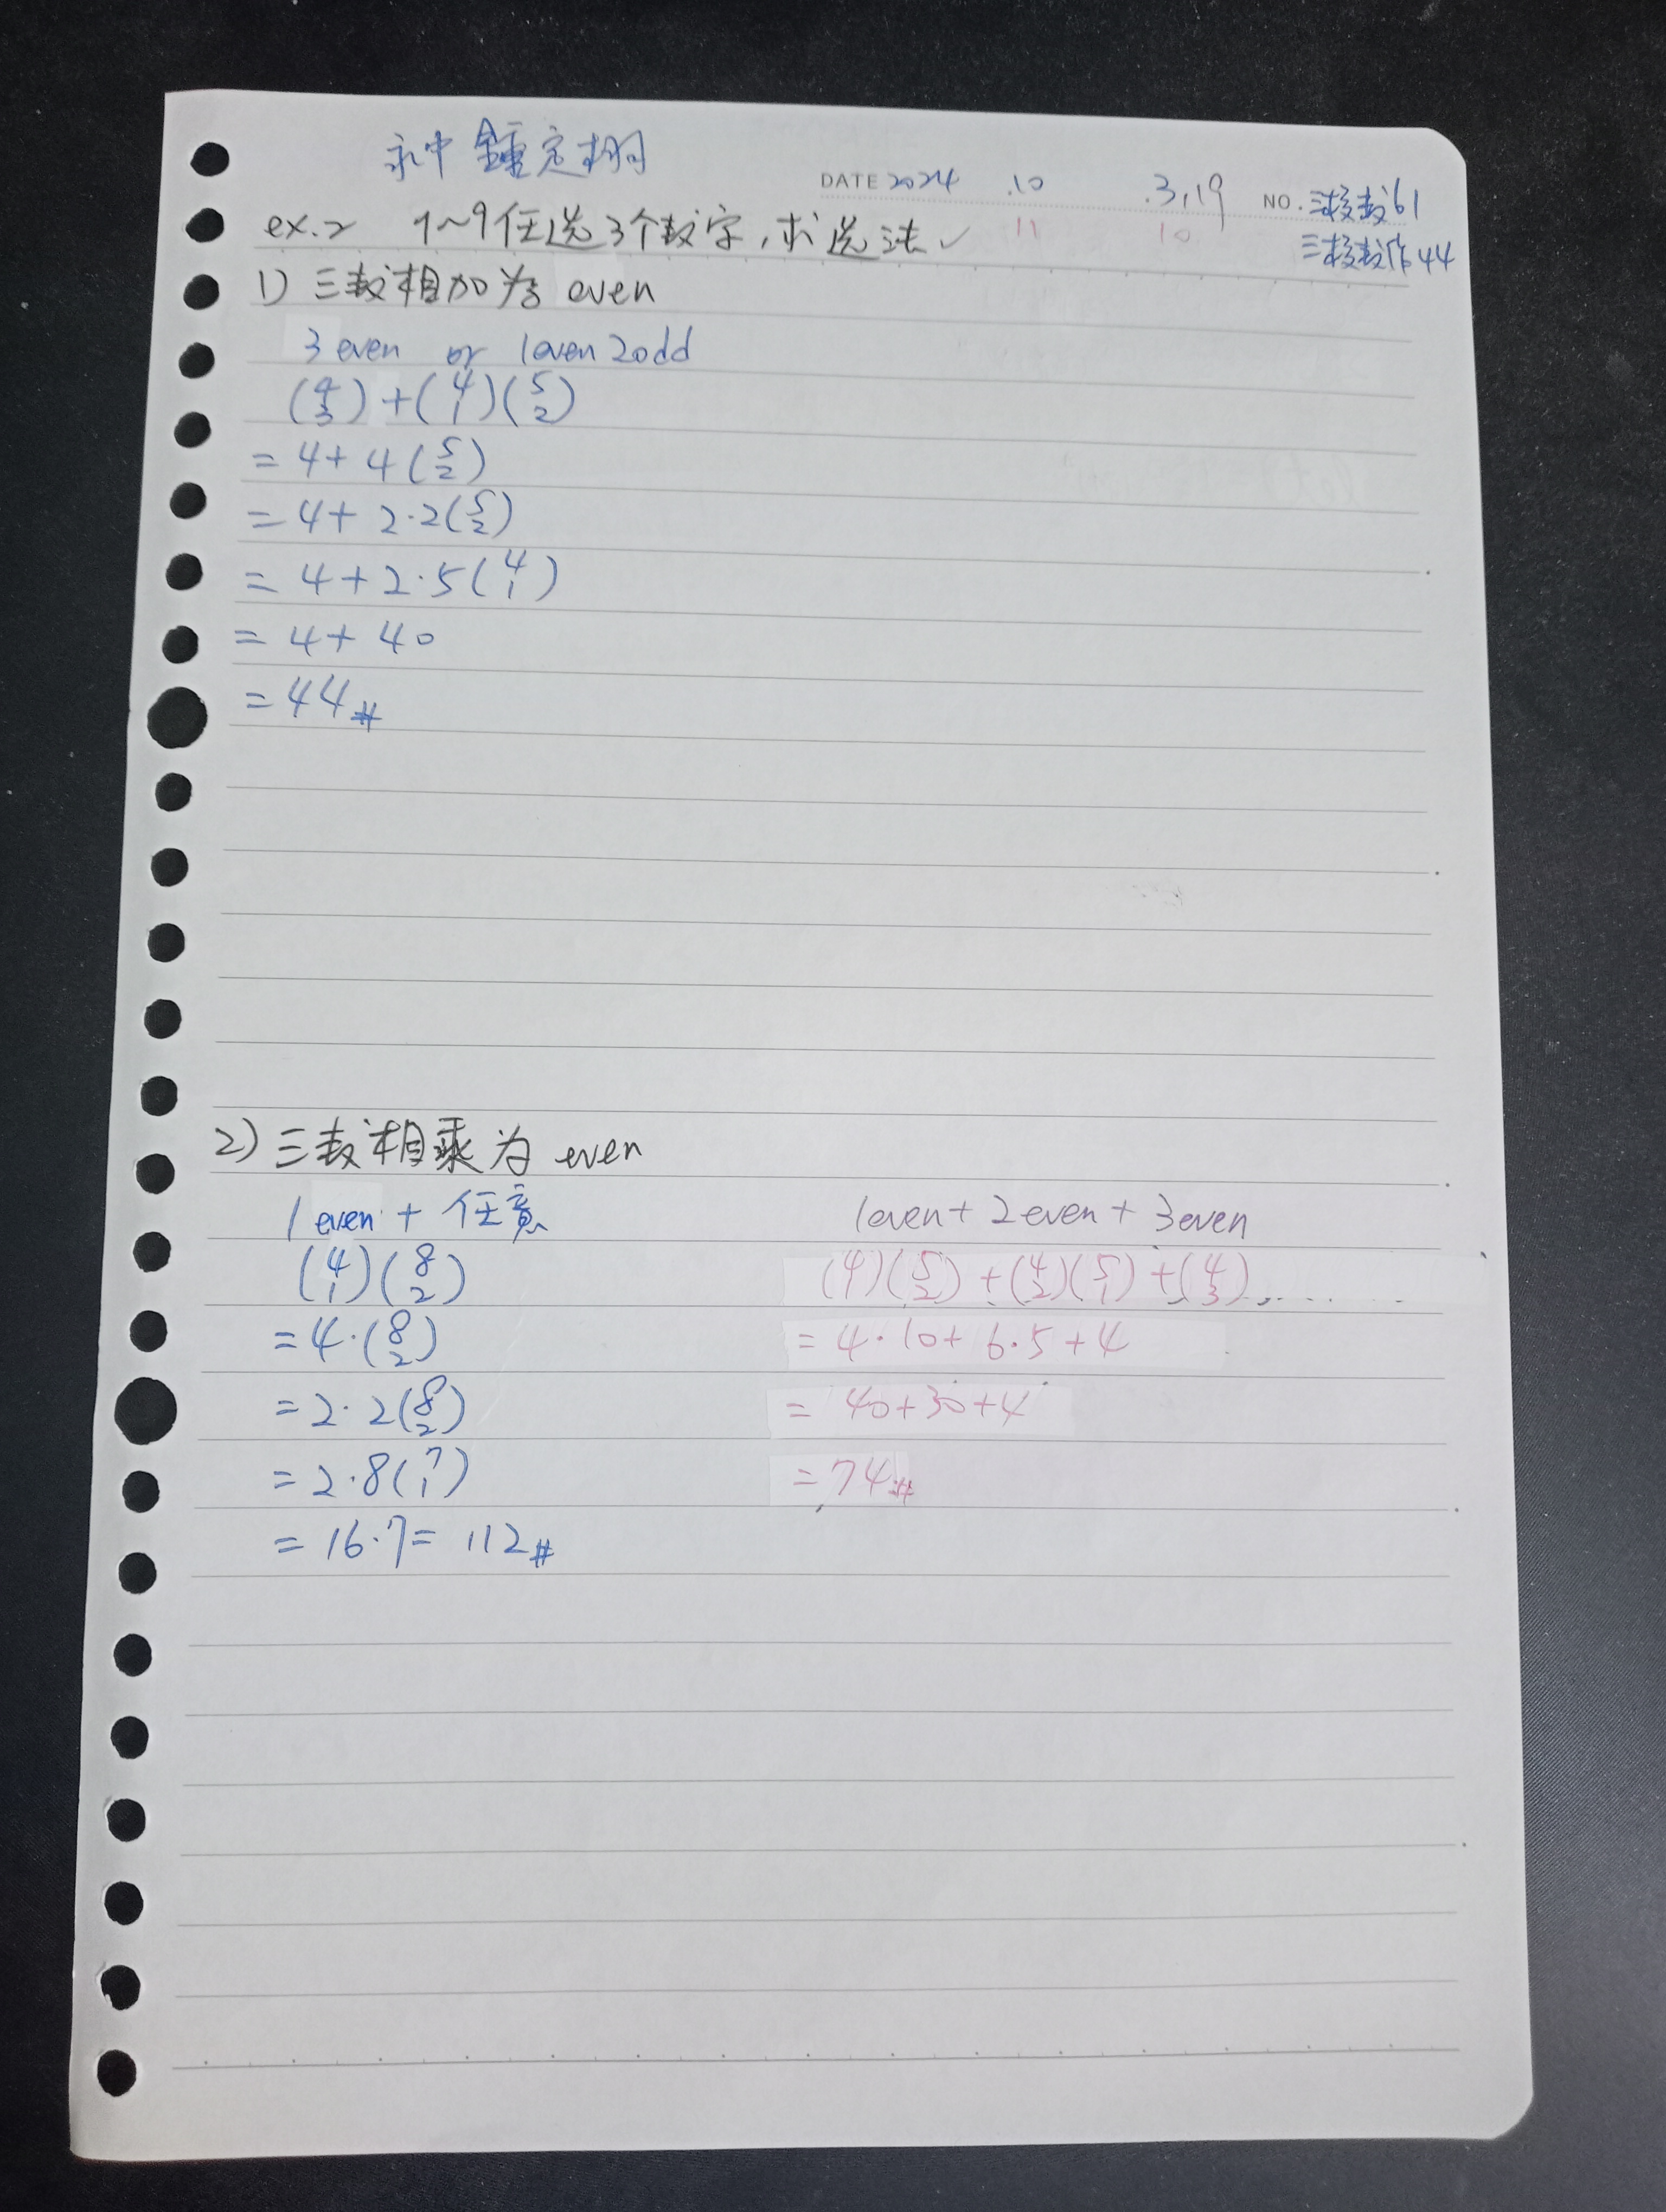 永中 鍾定栩
DATE 2024 .10 .3,19 NO. 三移数61
11 10 三移数作44
ex.2 1~9任选3个数字,求选法✓
1) 三数相加为 even
3 even or 1even 2odd
(4 3) + (4 1)(5 2)
= 4 + 4 (5 2)
= 4 + 2·2(5 2)
= 4 + 2·5(4 1)
= 4 + 40
= 44 #
2) 三数相乘为 even
1 even + 任意
(4 1)(8 2)
= 4·(8 2)
= 2·2(8 2)
= 2·8(7 1)
= 16·7 = 112 #
1even + 2even + 3even
(4 1)(5 2) + (4 2)(5 1) + (4 3)
= 4·10 + 6·5 + 4
= 40+30+4
= 74 #